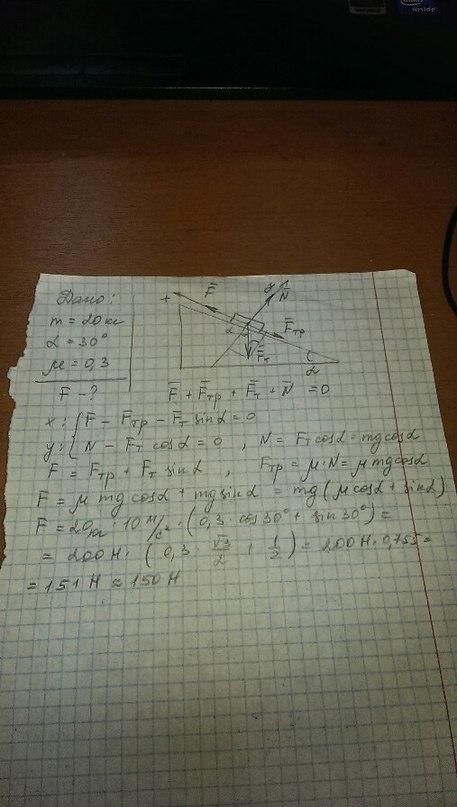 inside
Дано:
m = 20 кг
α = 30°
μ = 0,3
F - ?
x F̄ y N̄
F̄тр
α F̄т
α
F̄ + F̄тр + F̄т + N̄ = 0
x: { F - Fтр - Fт sinα = 0
y: { N - Fт cosα = 0 , N = Fт cosα = mg cosα
F = Fтр + Fт sinα , Fтр = μ·N = μ mg cosα
F = μ mg cosα + mg sinα = mg (μ cosα + sinα)
F = 20 кг · 10 м/с² · (0,3 · cos 30° + sin 30°) =
= 200 Н · (0,3 · √3/2 + 1/2) = 200 Н · 0,755 =
= 151 Н ≈ 150 Н